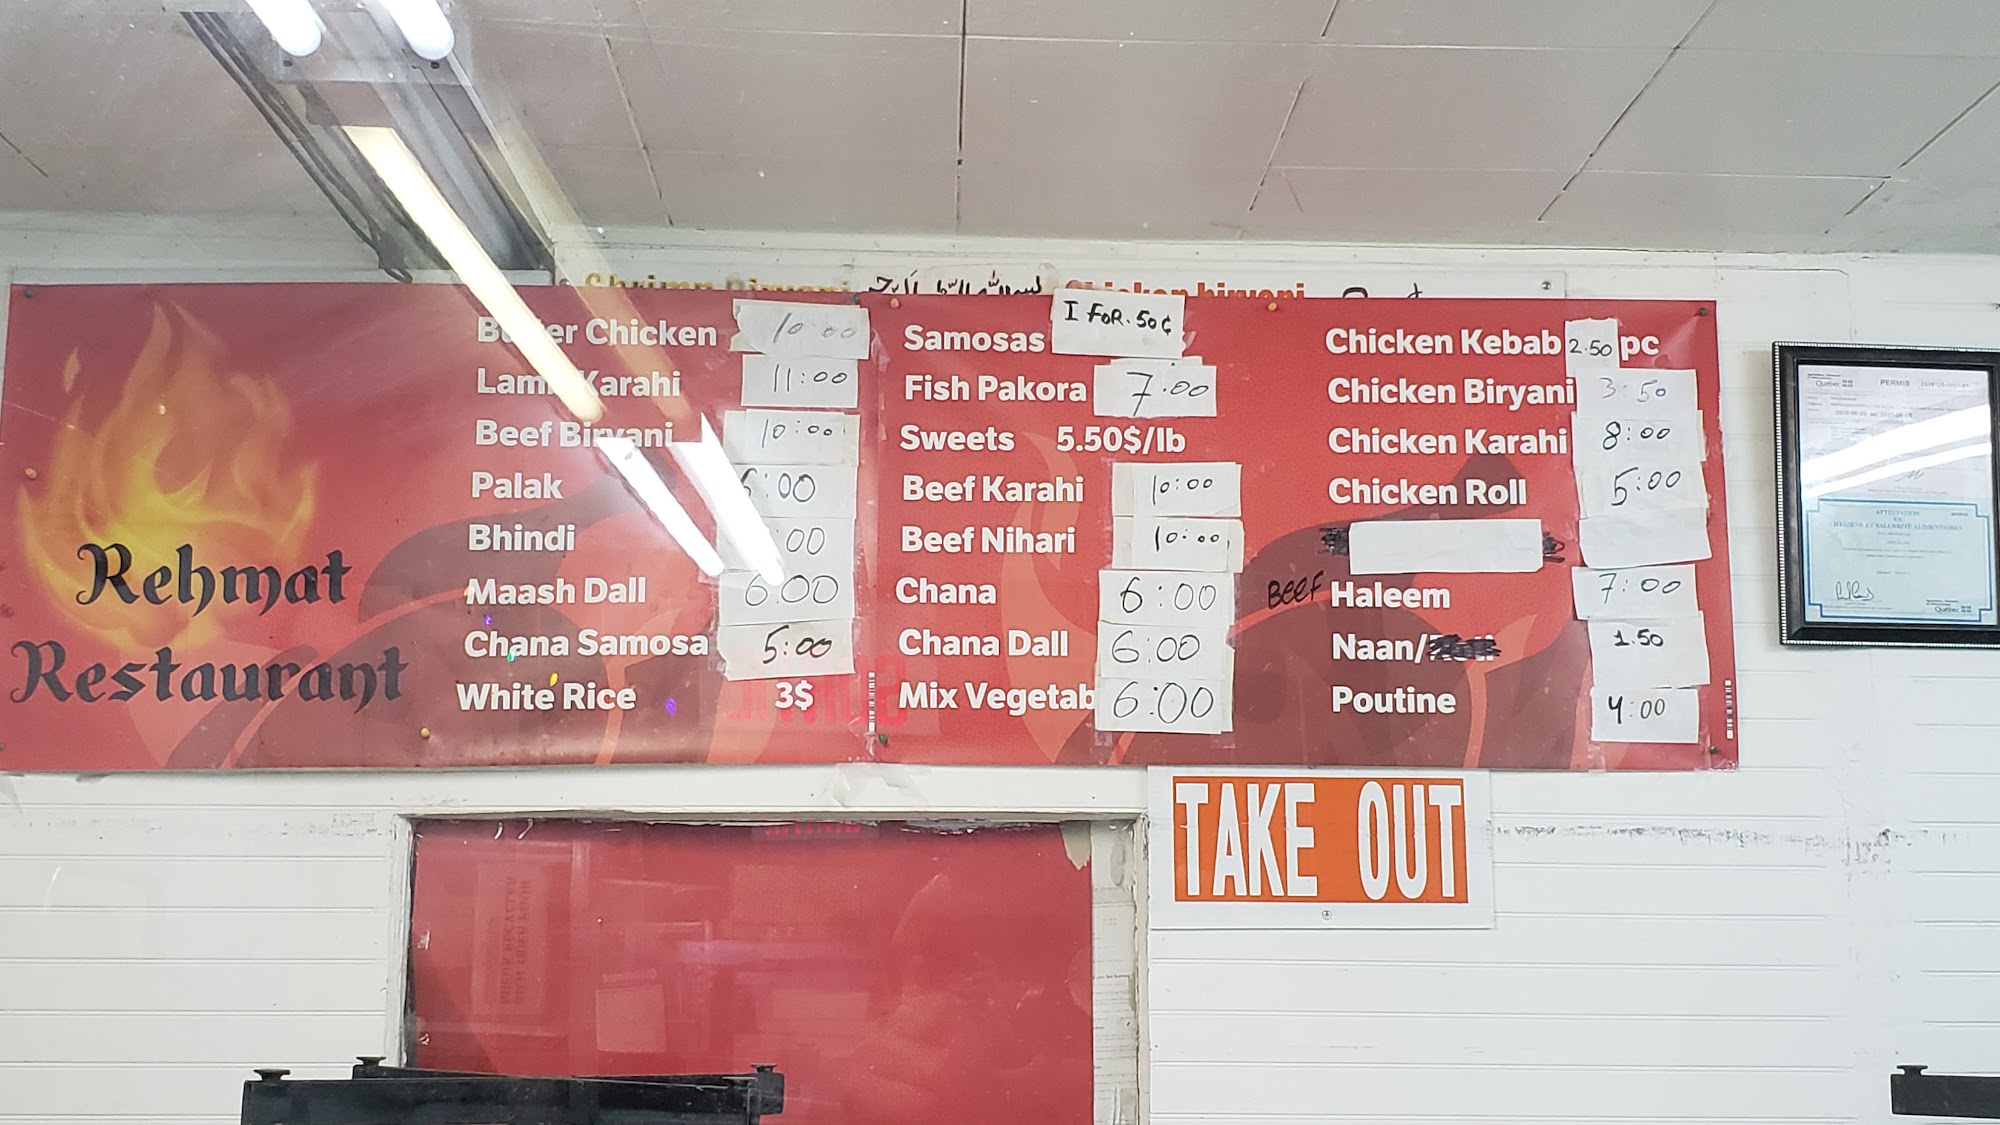 Rehmat
Restaurant
Butter Chicken 10:00
Lamb Karahi 11:00
Beef Biryani 10:00
Palak 6:00
Bhindi :00
Maash Dall 6:00
Chana Samosa 5:00
White Rice 3$
Samosas 1 FOR .50¢
Fish Pakora 7.00
Sweets 5.50$/lb
Beef Karahi 10:00
Beef Nihari 10:00
Chana 6:00
Chana Dall 6:00
Mix Vegetab 6:00
Chicken Kebab 2.50 pc
Chicken Biryani 3:50
Chicken Karahi 8:00
Chicken Roll 5:00
BEEF Haleem 7:00
Naan/ 1.50
Poutine 4:00
Shrimp Biryani
Chicken biryani
TAKE OUT
Québec PERMIS
ATTESTATION
EN
HYGIÈNE ET SALUBRITÉ ALIMENTAIRES
Québec